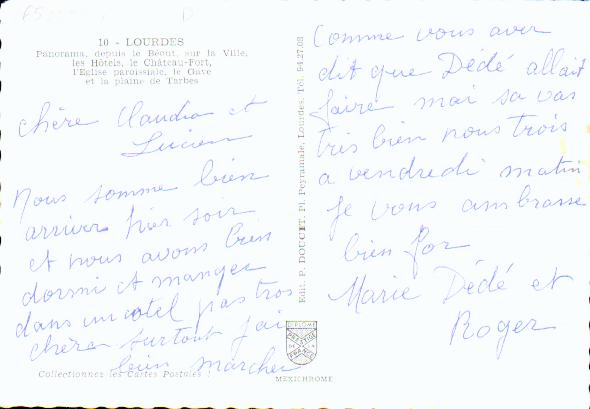 10 - LOURDES
Panorama, depuis le Béout, sur la Ville,
les Hôtels, le Château-Fort,
l'Eglise paroissiale, le Gave
et la plaine de Tarbes
chère Claudia et
Lucien
Nous somme bien
arriver hier soir
et nous avons bien
dormi et manger
dans un otel pas tros
chèr surtout j'ai
bien marcher
Collectionnez les Cartes Postales !
Edit. P. DOUCET, Pl. Peyramale, Lourdes. Tél. 94.27.08
DIPLOME
PRESTIGE
DE LA
FRANCE
MEXICHROME
Comme vous aver
dit que Dédé allait
faire mai sa vas
très bien nous trois
a vendredi matin
Je vous ambrasse
bien for
Marie Dédé et
Roger